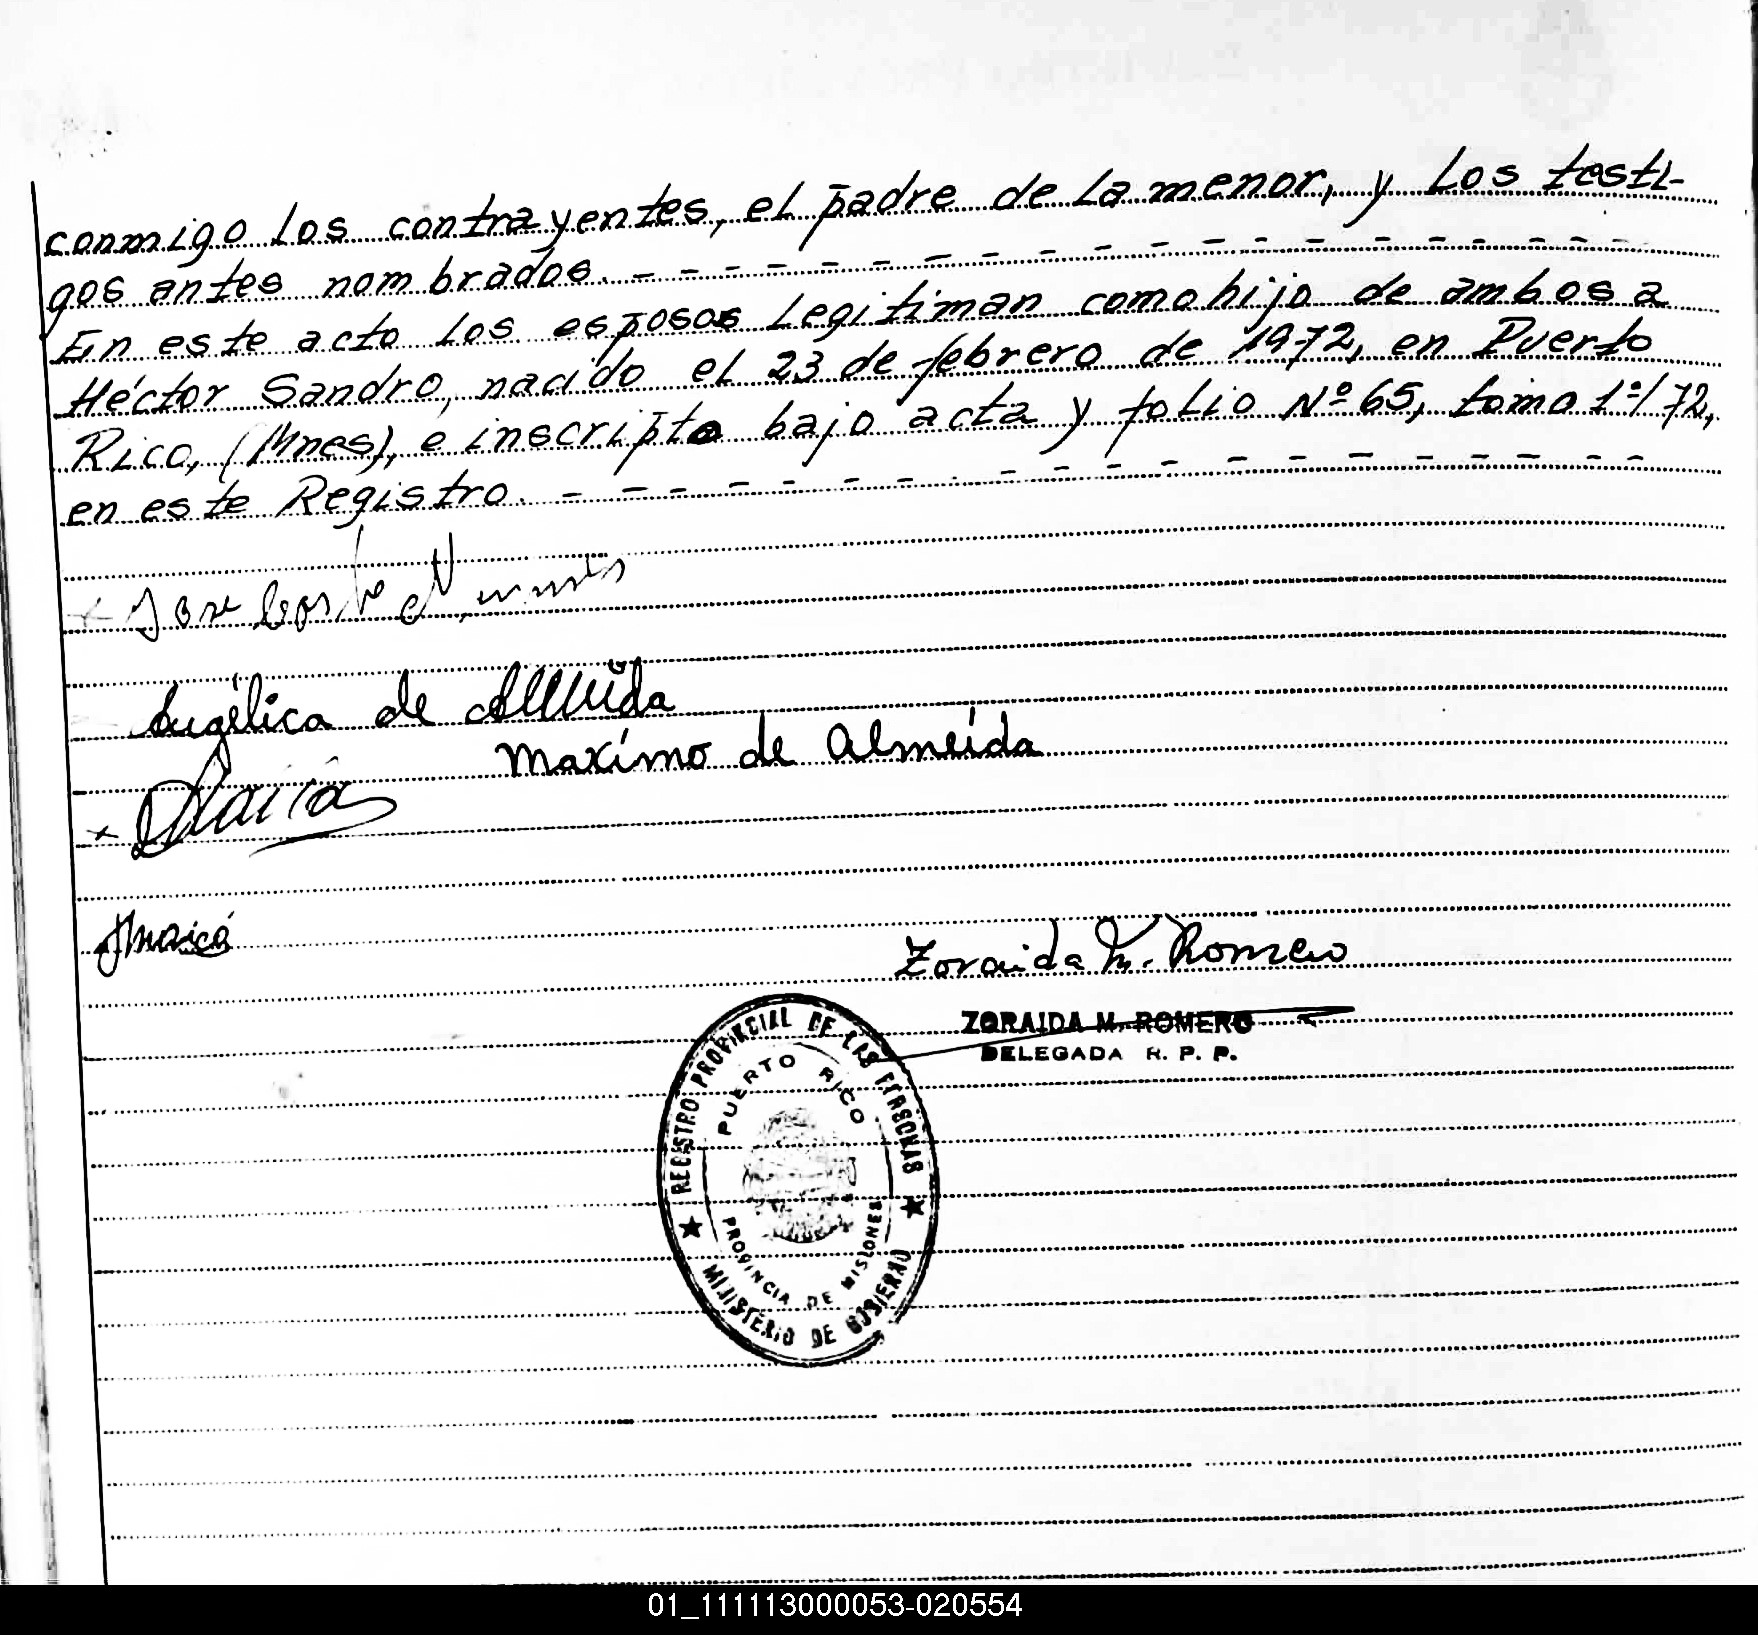 conmigo los contrayentes, el padre de la menor, y los testi-
gos antes nombrados. - - - - - - - - - - - - - - - - - - - -
En este acto los esposos legitiman como hijo de ambos a
Héctor Sandro, nacido el 23 de febrero de 1972, en Puerto
Rico, (Mnes), e inscripto bajo acta y folio Nº 65, tomo 1º/72,
en este Registro. - - - - - - - - - - - - - - - - - - - -
Angélica de Almeida
Maximo de Almeida
Zoraida M. Romero
ZORAIDA M. ROMERO
DELEGADA R. P. P.
REGISTRO PROVINCIAL DE LAS PERSONAS
PUERTO RICO
PROVINCIA DE MISIONES
MINISTERIO DE GOBIERNO
01_111113000053-020554